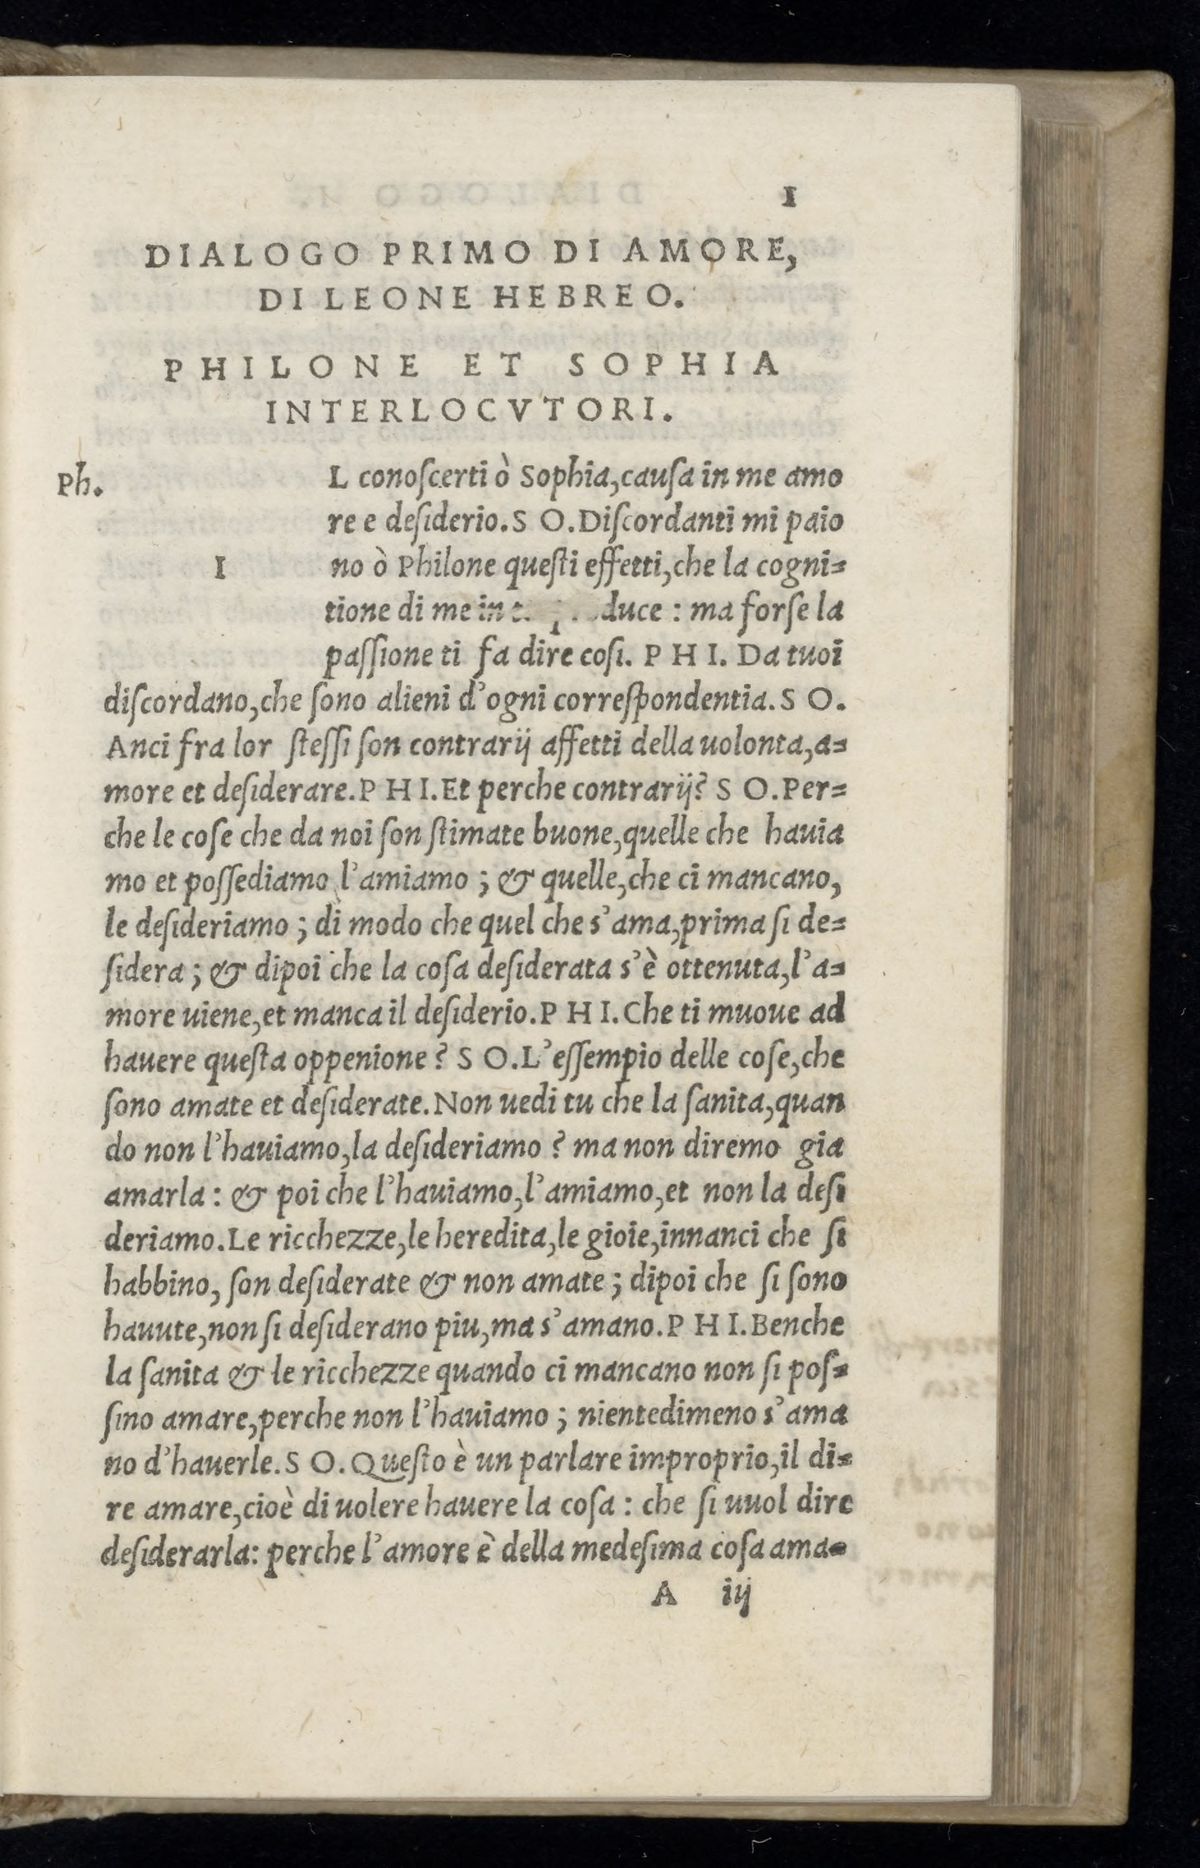 1
DIALOGO PRIMO DI AMORE,
DI LEONE HEBREO.
PHILONE ET SOPHIA
INTERLOCVTORI.
Ph.
L conoſcerti ò Sophia, cauſa in me amo
re e deſiderio. S O. Diſcordanti mi paio
I
no ò Philone queſti effetti, che la cogni=
tione di me in duce : ma forſe la
paſſione ti fa dire coſi. P H I. Da tuoi
diſcordano, che ſono alieni d'ogni correſpondentia. S O.
Anci fra lor ſteſſi ſon contrarij affetti della uolonta, a=
more et deſiderare. P H I. Et perche contrarij? S O. Per=
che le coſe che da noi ſon ſtimate buone, quelle che hauia
mo et poſſediamo l'amiamo ; & quelle, che ci mancano,
le deſideriamo ; di modo che quel che s'ama, prima ſi de=
ſidera ; & dipoi che la coſa deſiderata s'è ottenuta, l'a=
more uiene, et manca il deſiderio. P H I. Che ti muoue ad
hauere queſta oppenione ? S O. L'eſſempio delle coſe, che
ſono amate et deſiderate. Non uedi tu che la ſanita, quan
do non l'hauiamo, la deſideriamo ? ma non diremo gia
amarla : & poi che l'hauiamo, l'amiamo, et non la deſi
deriamo. Le ricchezze, le heredita, le gioie, innanci che ſi
habbino, ſon deſiderate & non amate ; dipoi che ſi ſono
hauute, non ſi deſiderano piu, ma s'amano. P H I. Benche
la ſanita & le ricchezze quando ci mancano non ſi poſ=
ſino amare, perche non l'hauiamo ; nientedimeno s'ama
no d'hauerle. S O. Queſto è un parlare improprio, il di=
re amare, cioè di uolere hauere la coſa : che ſi uuol dire
deſiderarla: perche l'amore è della medeſima coſa ama=
A iij